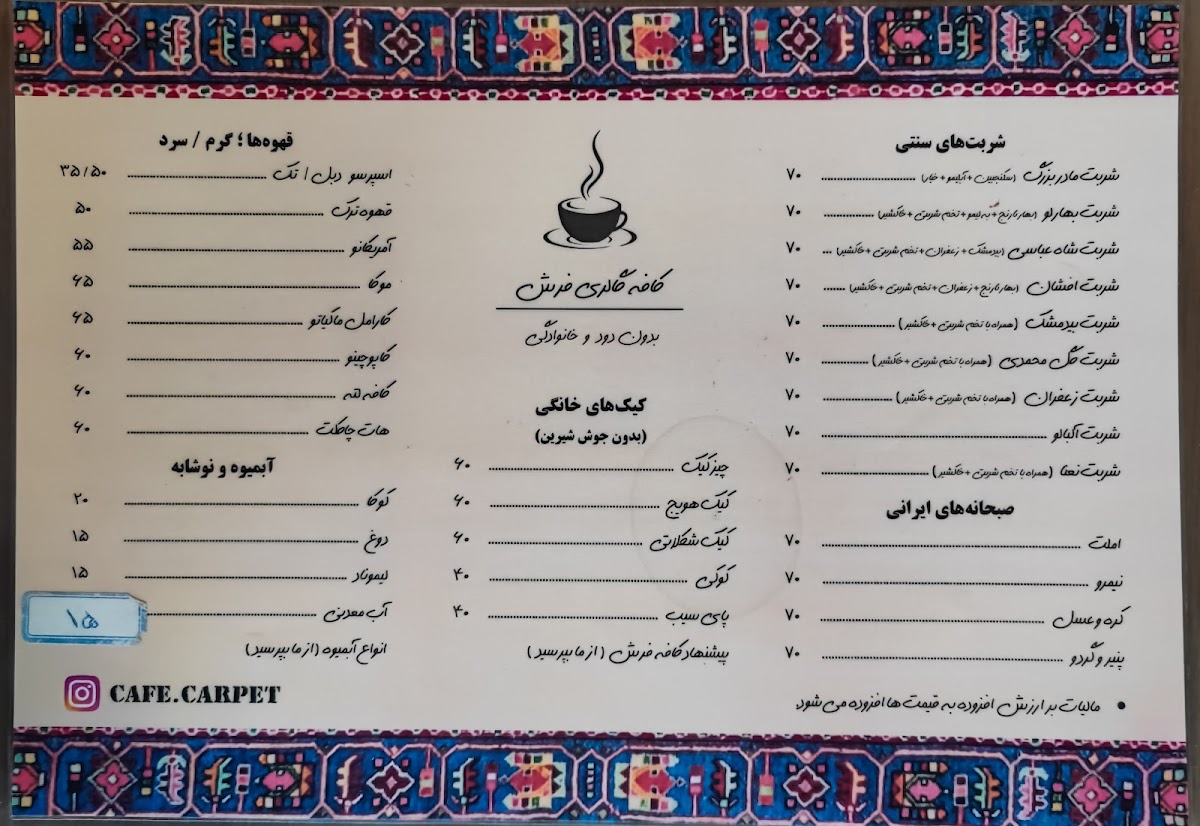 شربت‌های سنتی
شربت مادربزرگ (سکنجبین + آبلیمو + خیار) ۷۰
شربت بهارلو (بهارنارنج + به لیمو + تخم شربتی + خاکشیر) ۷۰
شربت شاه عباسی (بیدمشک + زعفران + تخم شربتی + خاکشیر) ۷۰
شربت افشان (بهارنارنج + زعفران + تخم شربتی + خاکشیر) ۷۰
شربت بیدمشک (همراه با تخم شربتی + خاکشیر) ۷۰
شربت گل محمدی (همراه با تخم شربتی + خاکشیر) ۷۰
شربت زعفران (همراه با تخم شربتی + خاکشیر) ۷۰
شربت آلبالو ۷۰
شربت نعنا (همراه با تخم شربتی + خاکشیر) ۷۰
صبحانه‌های ایرانی
املت ۷۰
نیمرو ۷۰
کره و عسل ۷۰
پنیر و گردو ۷۰
• مالیات بر ارزش افزوده به قیمت ها افزوده می شود
کافه گالری فرش
بدون دود و خانوادگی
کیک‌های خانگی
(بدون جوش شیرین)
چیز کیک ۶۰
کیک هویج ۶۰
کیک شکلاتی ۶۰
کوکی ۴۰
پای سیب ۴۰
پیشنهاد کافه فرش (از ما بپرسید)
قهوه‌ها ؛ گرم / سرد
اسپرسو دبل / تک ۳۵/۵۰
قهوه ترک ۵۰
آمریکانو ۵۵
موکا ۶۵
کارامل ماکیاتو ۶۵
کاپوچینو ۶۰
کافه لته ۶۰
هات چاکلت ۶۰
آبمیوه و نوشابه
کوکا ۲۰
دوغ ۱۵
لیموناد ۱۵
آب معدنی ۱۵
انواع آبمیوه (از ما بپرسید)
CAFE.CARPET